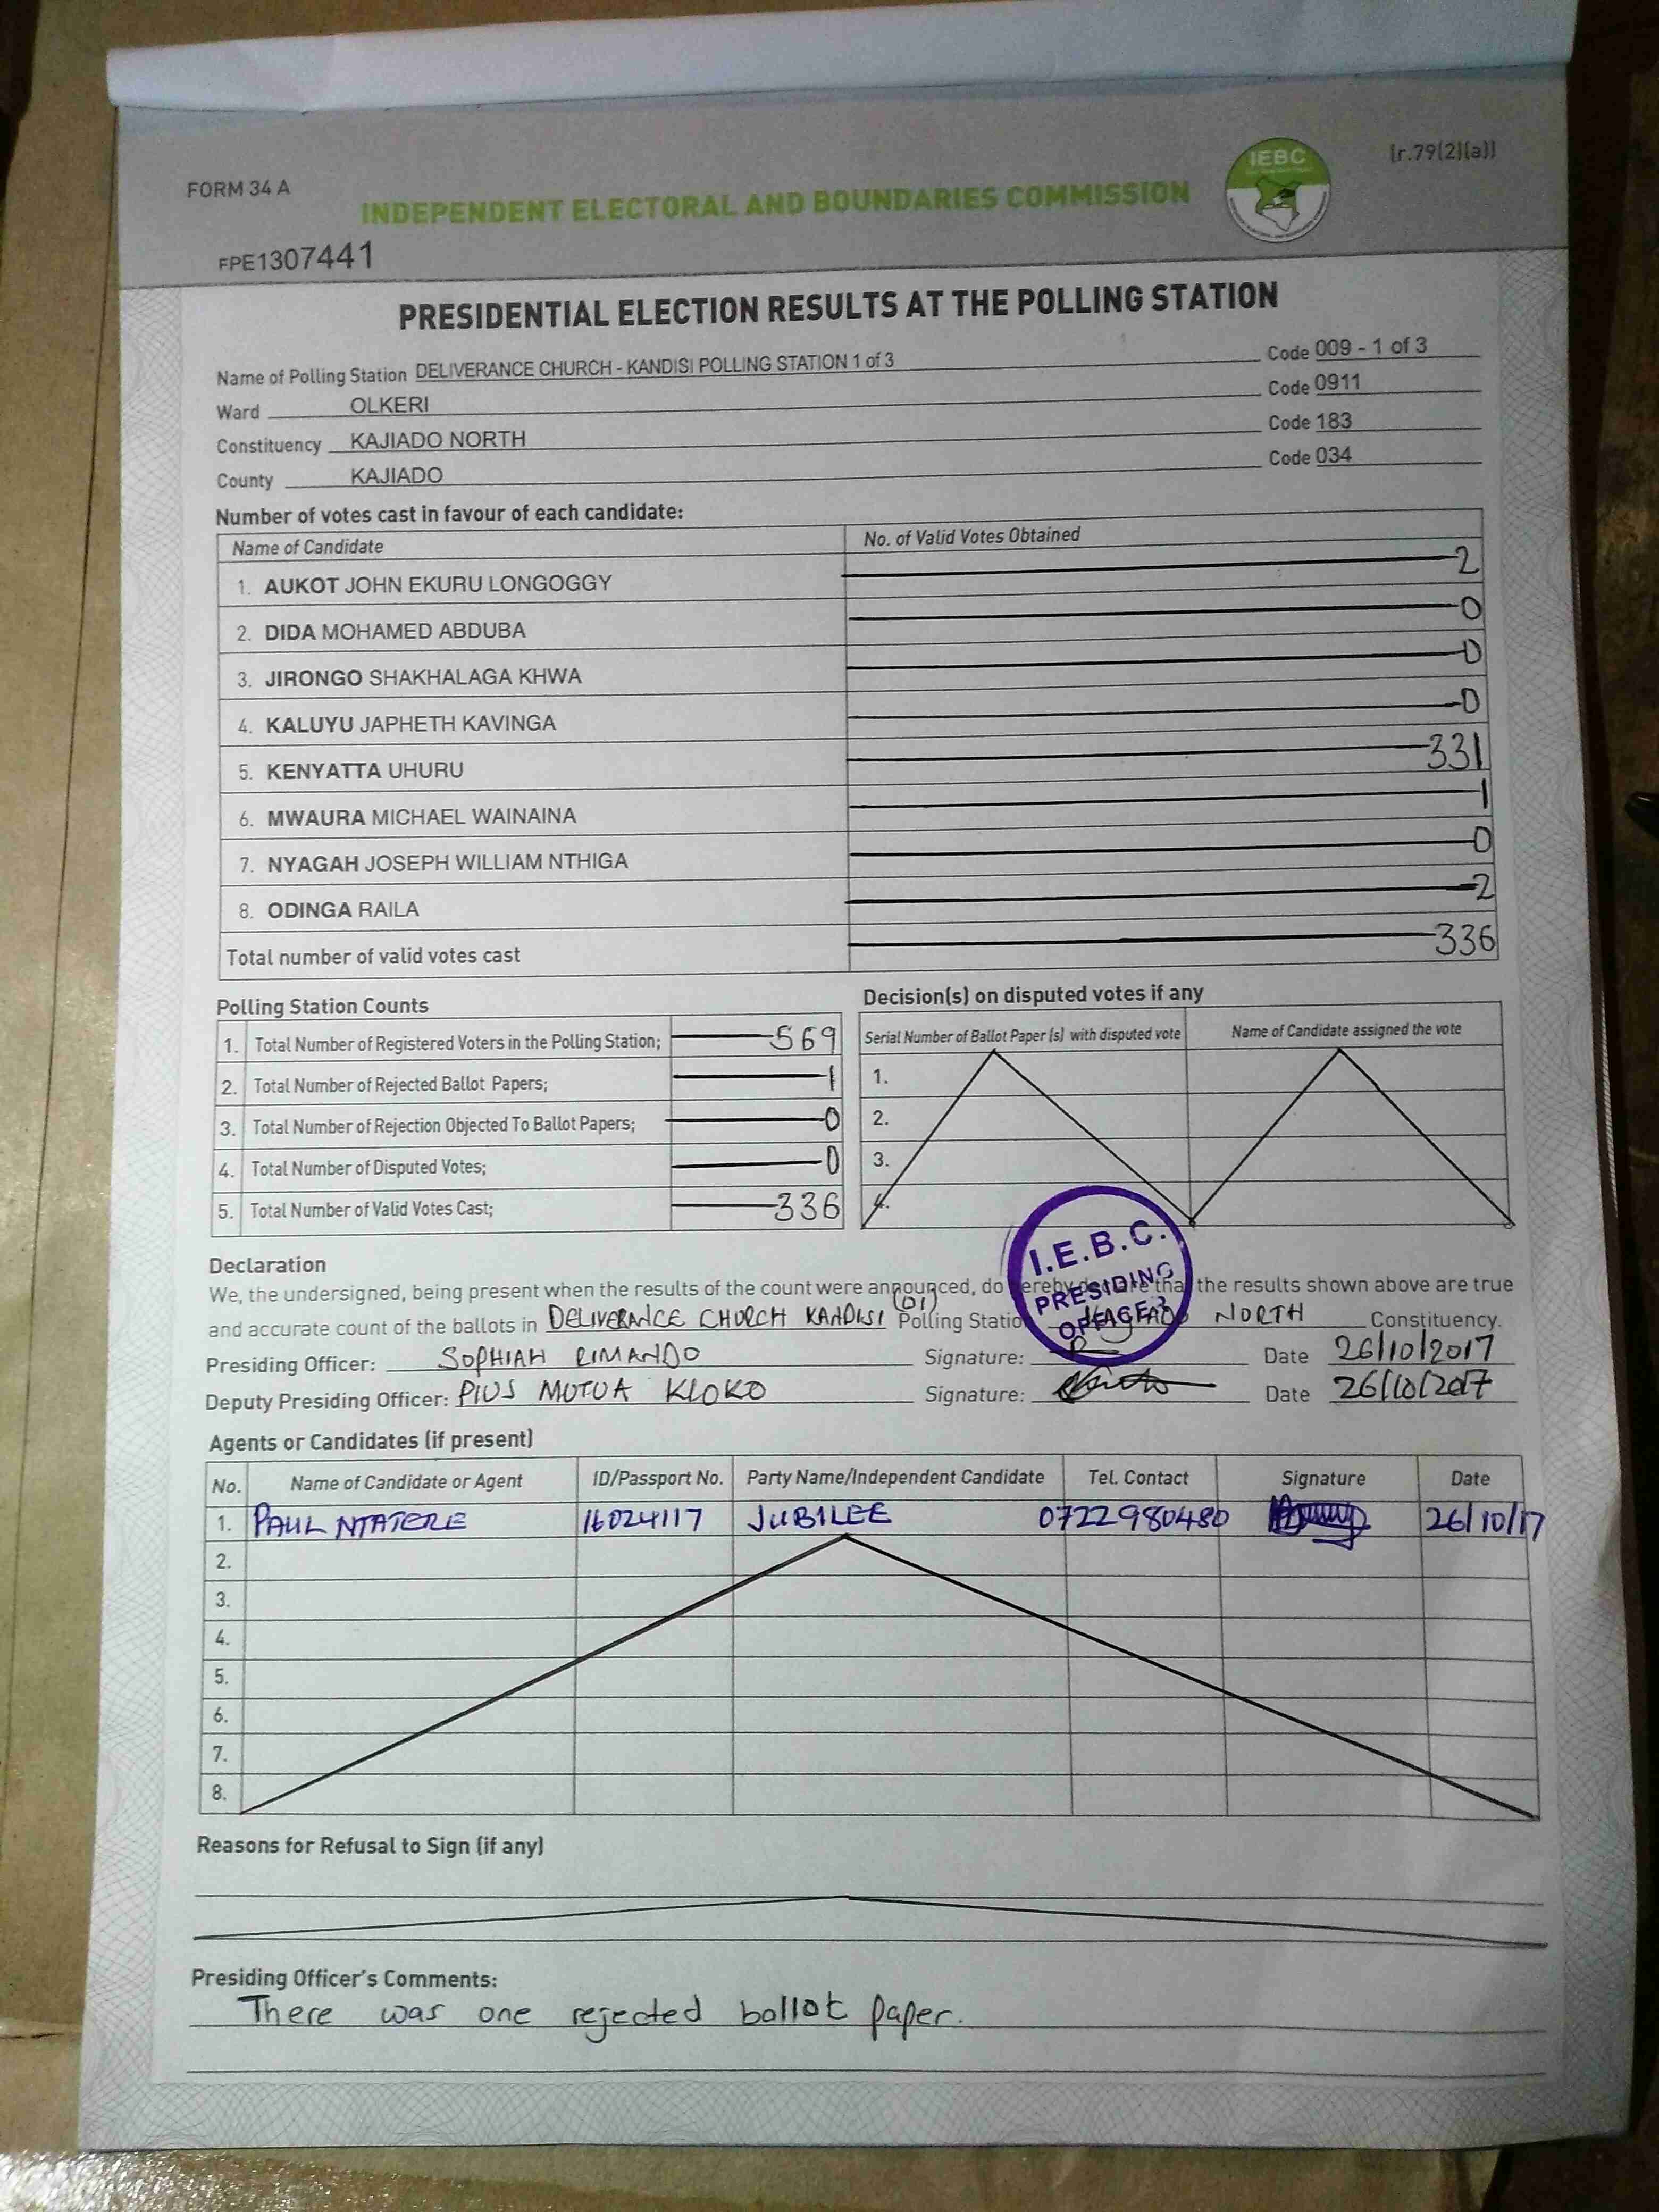 FORM 34 A
INDEPENDENT ELECTORAL AND BOUNDARIES COMMISSION
IEBC
[r.79(2)(a)]
FPE1307441
PRESIDENTIAL ELECTION RESULTS AT THE POLLING STATION
Name of Polling Station DELIVERANCE CHURCH - KANDISI POLLING STATION 1 of 3 Code 009 - 1 of 3
Ward OLKERI Code 0911
Constituency KAJIADO NORTH Code 183
County KAJIADO Code 034
Number of votes cast in favour of each candidate:
Name of Candidate No. of Valid Votes Obtained
1. AUKOT JOHN EKURU LONGOGGY 2
2. DIDA MOHAMED ABDUBA 0
3. JIRONGO SHAKHALAGA KHWA 0
4. KALUYU JAPHETH KAVINGA 0
5. KENYATTA UHURU 331
6. MWAURA MICHAEL WAINAINA 1
7. NYAGAH JOSEPH WILLIAM NTHIGA 0
8. ODINGA RAILA 2
Total number of valid votes cast 336
Polling Station Counts
1. Total Number of Registered Voters in the Polling Station; 569
2. Total Number of Rejected Ballot Papers; 1
3. Total Number of Rejection Objected To Ballot Papers; 0
4. Total Number of Disputed Votes; 0
5. Total Number of Valid Votes Cast; 336
Decision(s) on disputed votes if any
Serial Number of Ballot Paper (s) with disputed vote Name of Candidate assigned the vote
1.
2.
3.
4.
I.E.B.C.
PRESIDING
OFFICER
Declaration
We, the undersigned, being present when the results of the count were announced, do hereby declare that the results shown above are true
and accurate count of the ballots in DELIVERANCE CHURCH KANDISI (01) Polling Station KAJIADO NORTH Constituency.
Presiding Officer: SOPHIAH RIMANDO Signature: Date 26/10/2017
Deputy Presiding Officer: PIUS MUTUA KLOKO Signature: Date 26/10/2017
Agents or Candidates (if present)
No. Name of Candidate or Agent ID/Passport No. Party Name/Independent Candidate Tel. Contact Signature Date
1. PAUL NTATERE 16024117 JUBILEE 0722980480 26/10/17
2.
3.
4.
5.
6.
7.
8.
Reasons for Refusal to Sign (if any)
Presiding Officer's Comments:
There was one rejected ballot paper.